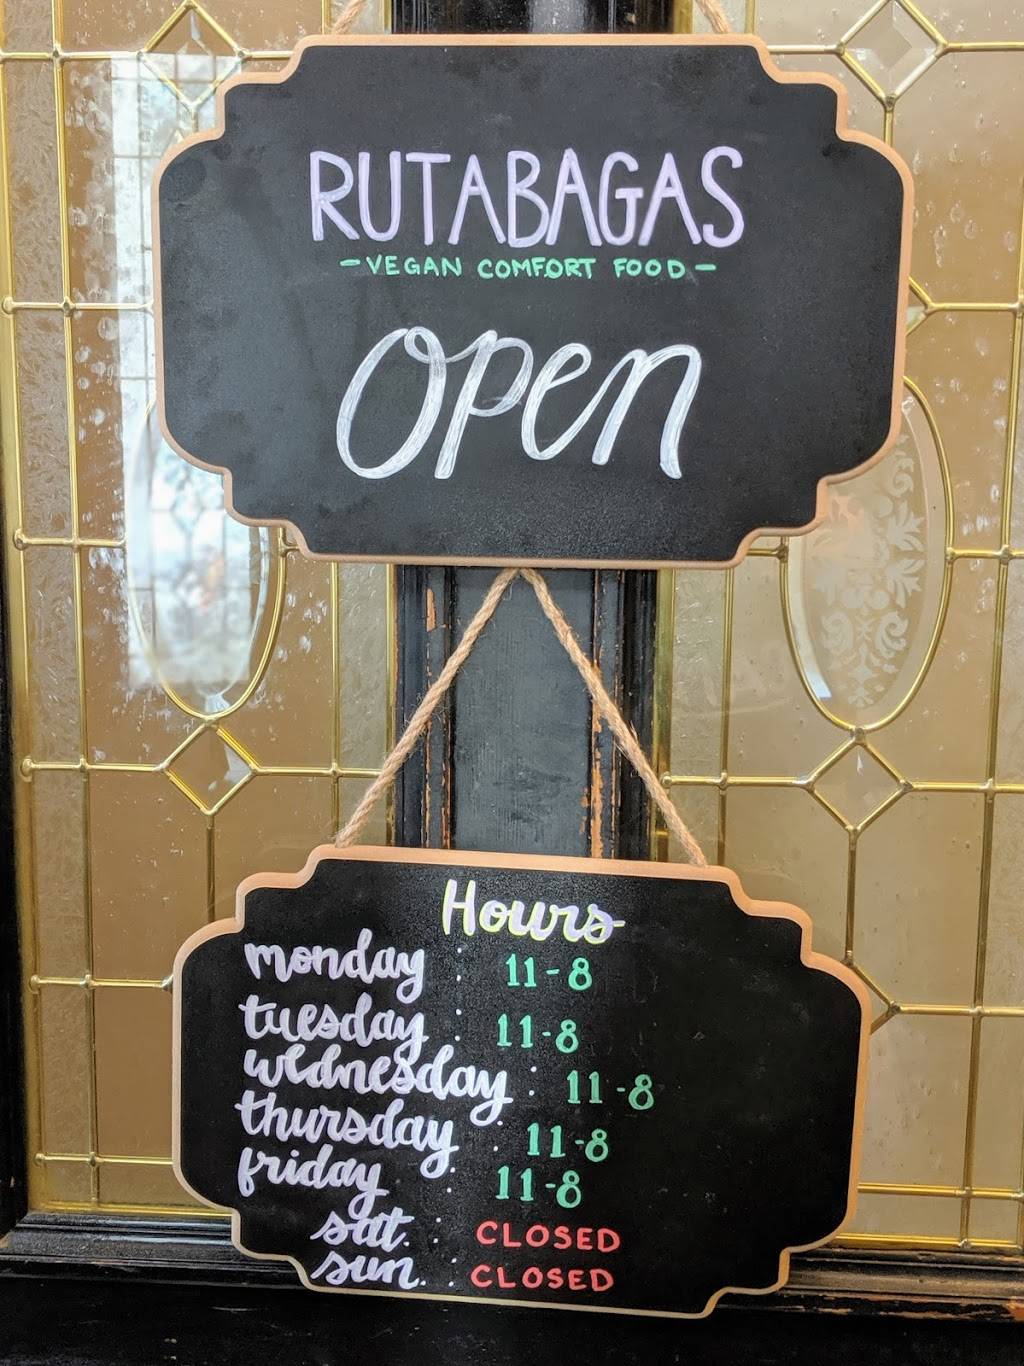 RUTABAGAS
-VEGAN COMFORT FOOD-
open
Hours
monday : 11-8
tuesday : 11-8
wednesday : 11-8
thursday : 11-8
friday : 11-8
sat. : CLOSED
sun. : CLOSED